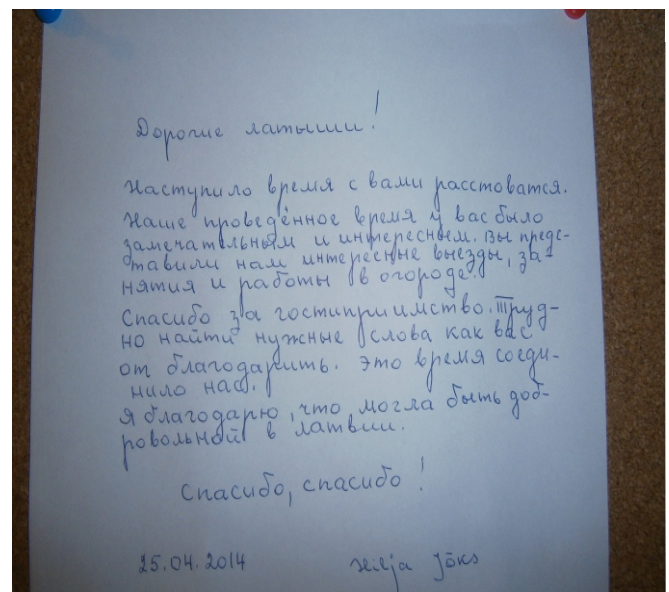 Дорогие латыши!
Наступило время с вами расстоватся.
Наше проведённое время у вас было
замечательным и интересным. Вы предс-
тавили нам интересные выезды, за-
нятия и работы в огороде.
Спасибо за гостиприимство. Труд-
но найти нужные слова как вас
от благодарить. Это время соеди-
нило нас.
Я благодарю, что могла быть доб-
ровольной в латвии.
Спасибо, спасибо!
25.04.2014 Jõks